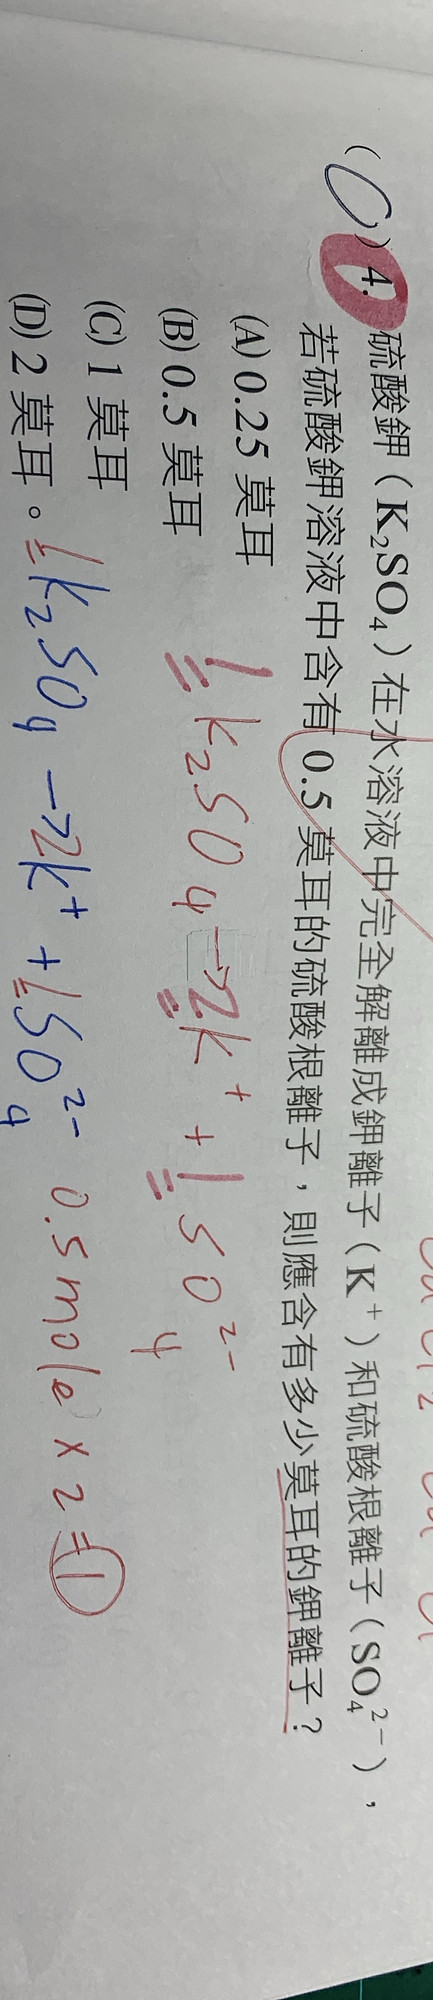 (C) 4. 硫酸鉀（K₂SO₄）在水溶液中完全解離成鉀離子（K⁺）和硫酸根離子（SO₄²⁻），
若硫酸鉀溶液中含有 0.5 莫耳的硫酸根離子，則應含有多少莫耳的鉀離子？
(A) 0.25 莫耳
(B) 0.5 莫耳
1 K₂SO₄ → 2K⁺ + 1 SO₄²⁻
(C) 1 莫耳
(D) 2 莫耳。
1 K₂SO₄ → 2K⁺ + 1 SO₄²⁻
0.5 mole × 2 = 1